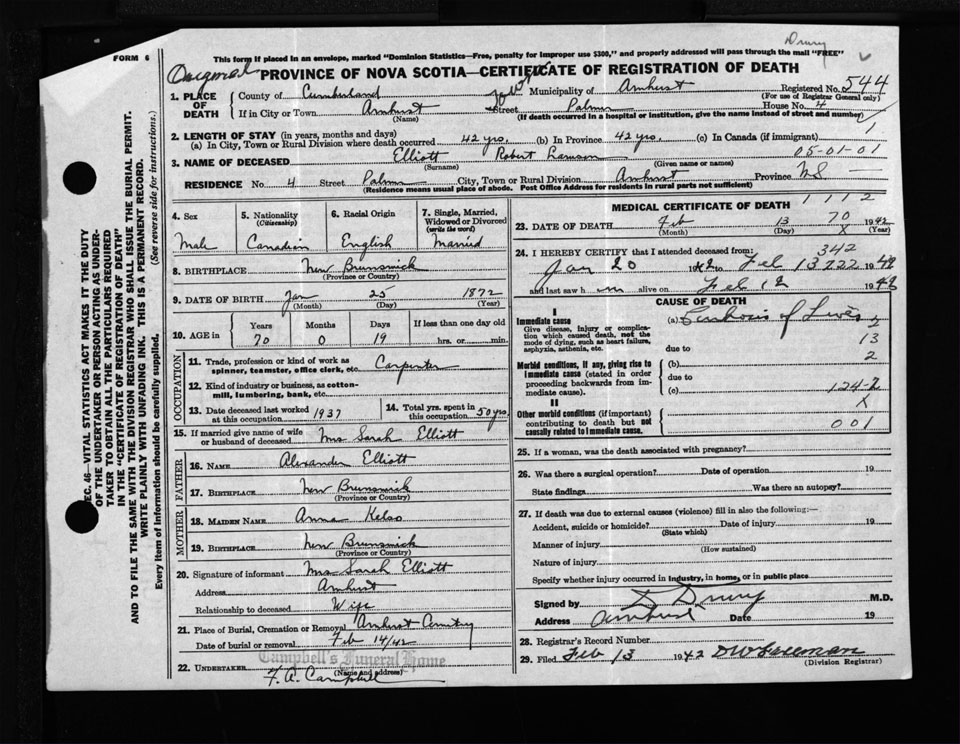 FORM 6
This form if placed in an envelope, marked "Dominion Statistics—Free, penalty for improper use $300," and properly addressed will pass through the mail "FREE"
Drury
Original
PROVINCE OF NOVA SCOTIA—CERTIFICATE OF REGISTRATION OF DEATH
Registered No. 544
(For use of Registrar General only)
1. PLACE OF DEATH
County of Cumberland Municipality of Amherst
If in City or Town Amherst Street Palmer House No. 4
(Name) (If death occurred in a hospital or institution, give the name instead of street and number)
1
2. LENGTH OF STAY (in years, months and days)
(a) In City, Town or Rural Division where death occurred 42 yrs. (b) In Province 42 yrs. (c) In Canada (if immigrant)
05-01-01
3. NAME OF DECEASED Elliott Robert
(Surname) (Given name or names)
RESIDENCE No. 4 Street Palmer City, Town or Rural Division Amherst Province NS —
(Residence means usual place of abode. Post Office Address for residents in rural parts not sufficient)
4. Sex
Male
5. Nationality
(Citizenship)
Canadian
6. Racial Origin
English
7. Single, Married, Widowed or Divorced
(write the word)
Married
8. BIRTHPLACE New Brunswick
(Province or Country)
9. DATE OF BIRTH Jan 25 1872
(Month) (Day) (Year)
10. AGE in
Years Months Days If less than one day old
70 0 19 hrs. or min.
OCCUPATION
11. Trade, profession or kind of work as spinner, teamster, office clerk, etc. Carpenter
12. Kind of industry or business, as cotton-mill, lumbering, bank, etc.
13. Date deceased last worked at this occupation 1937
14. Total yrs. spent in this occupation 50 yrs.
15. If married give name of wife or husband of deceased Mrs Sarah Elliott
FATHER
16. NAME Alexander Elliott
17. BIRTHPLACE New Brunswick
(Province or Country)
MOTHER
18. MAIDEN NAME Anna Kelso
19. BIRTHPLACE New Brunswick
(Province or Country)
20. Signature of informant Mrs Sarah Elliott
Address Amherst
Relationship to deceased Wife
21. Place of Burial, Cremation or Removal Amherst Cemetery
Date of burial or removal Feb 14/42
Campbell's Funeral Home
22. UNDERTAKER F. A. Campbell
(Name and address)
MEDICAL CERTIFICATE OF DEATH
1112
70
23. DATE OF DEATH Feb 13 1942
(Month) (Day) (Year)
X
24. I HEREBY CERTIFY that I attended deceased from:
342
Jan 20 1942 to Feb 13 222 1942
and last saw h im alive on Feb 12 1942
CAUSE OF DEATH
I
Immediate cause
Give disease, injury or complication which caused death, not the mode of dying, such as heart failure, asphyxia, asthenia, etc.
(a) Cirrhosis of Liver
2
13
due to
2
Morbid conditions, if any, giving rise to immediate cause (stated in order proceeding backwards from immediate cause).
(b)
due to
(c) 124-2
II
X
Other morbid conditions (if important) contributing to death but not causally related to immediate cause.
001
25. If a woman, was the death associated with pregnancy?
26. Was there a surgical operation? Date of operation 19
State findings Was there an autopsy?
27. If death was due to external causes (violence) fill in also the following:—
Accident, suicide or homicide? Date of injury 19
(State which)
Manner of injury
(How sustained)
Nature of injury
Specify whether injury occurred in industry, in home, or in public place
Signed by Drury M.D.
Address Amherst Date 19
28. Registrar's Record Number
29. Filed Feb 13 1942 DW Freeman
(Division Registrar)
SEC. 46—VITAL STATISTICS ACT MAKES IT THE DUTY
OF THE UNDERTAKER OR PERSON ACTING AS UNDER-
TAKER TO OBTAIN ALL THE PARTICULARS REQUIRED
IN THE "CERTIFICATE OF REGISTRATION OF DEATH"
AND TO FILE THE SAME WITH THE DIVISION REGISTRAR WHO SHALL ISSUE THE BURIAL PERMIT.
WRITE PLAINLY WITH UNFADING INK. THIS IS A PERMANENT RECORD.
Every item of information should be carefully supplied. (See reverse side for instructions.)